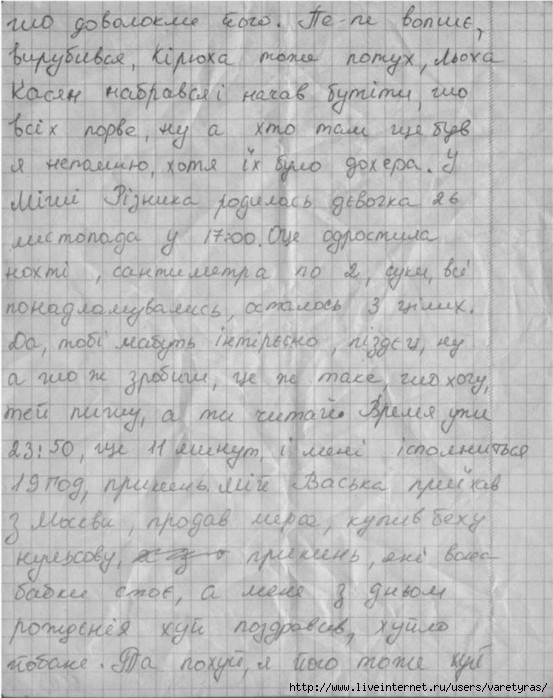 шо доволокли його. Пє-пє вопшє,
вирубився, Кірюха тоже потух, Льоха
Касян набрався і начав бутіти, шо
всіх порве, ну а хто там ще був
я непомню, хотя їх було дохера. У
Міші Різника родилась дєвочка 26
листопада у 17:00. Оце одростила
нохті, сантиметра по 2, суки, всі
понадламувались, осталось 3 цілих.
Да, тобі мабуть інтірєсно, піздєц, ну
а шо ж зробиш, це же таке, шо хочу,
тей пишу, а ти читай. Время уже
23:50, ще 11 минут і мені ісполниться
19 год, прикинь. Мій Васька приїхав
з Москви, продав мерс, купив беху
нульову, прикинь, які вона
бабки стоє, а мене з дньом
рождєнія хуй поздравив, хуйло
йобане. Та похуй, я його тоже хуй
http://www.liveinternet.ru/users/varetyras/